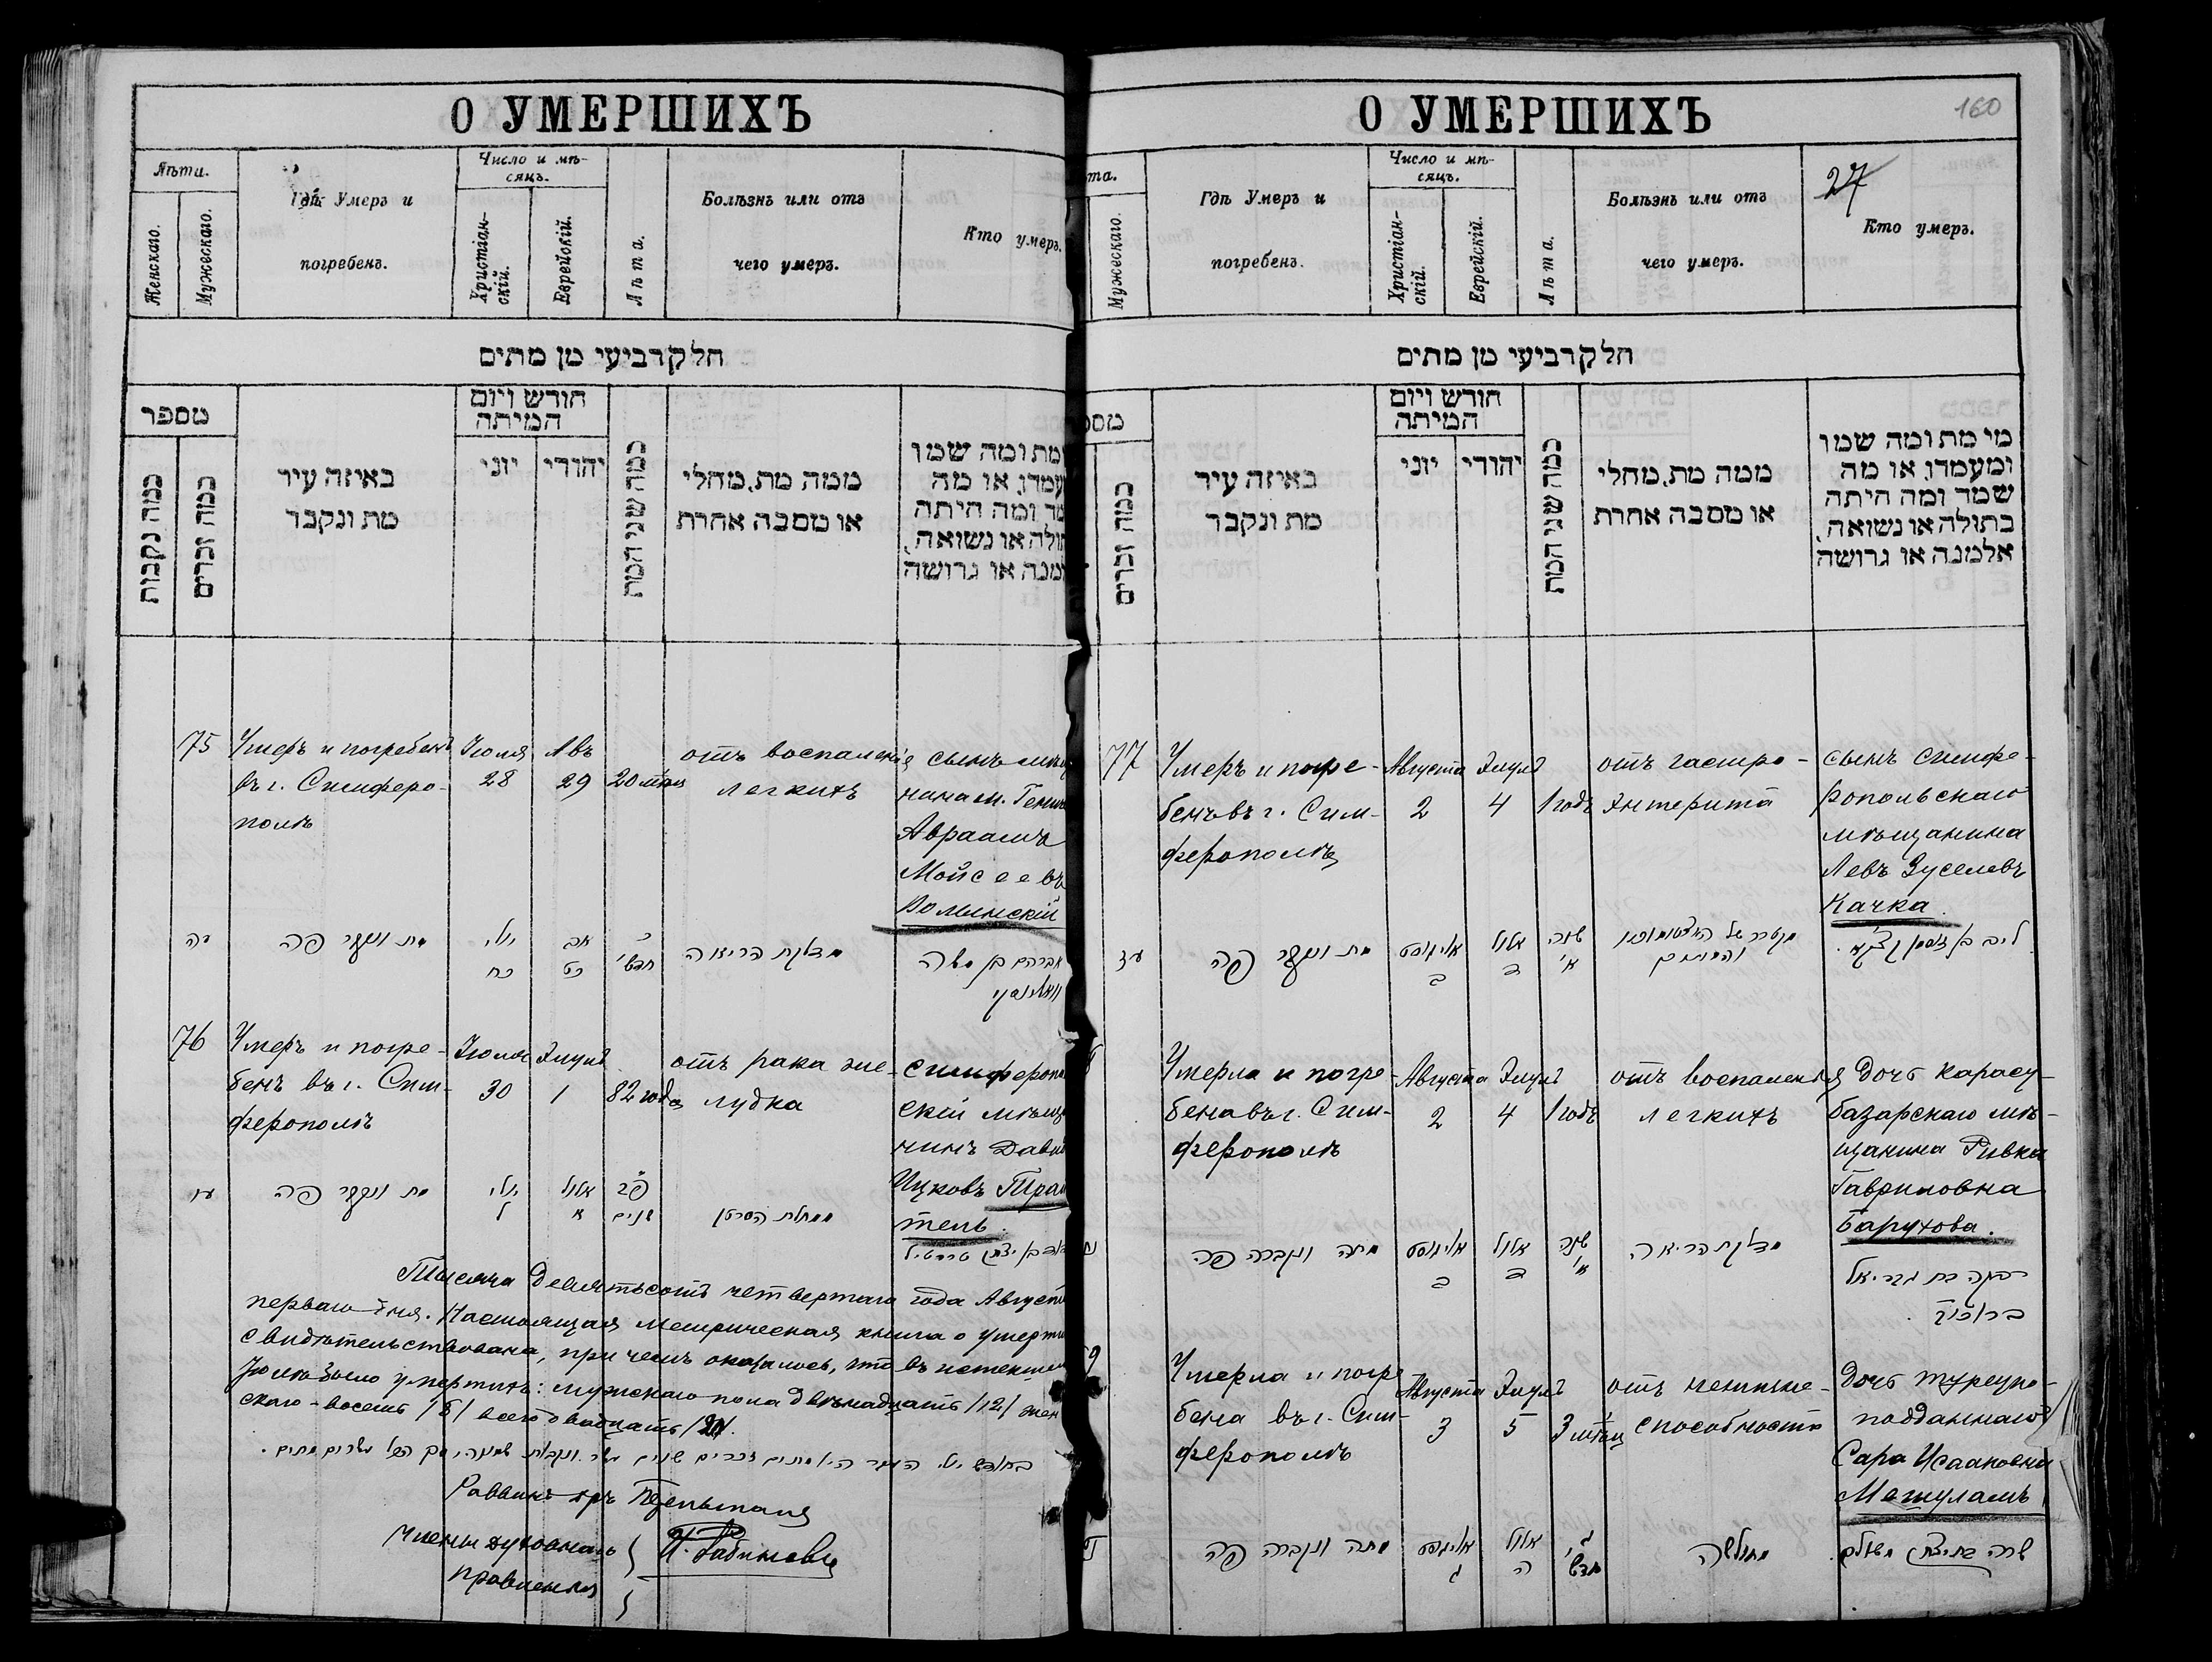 О УМЕРШИХЪ
Лѣта.
Женскаго.
Мужескаго.
Гдѣ Умеръ и
погребенъ.
Число и мѣ-
сяцъ.
Христіан-
скій.
Еврейскій.
Лѣта.
Болѣзнь или отъ
чего умеръ.
Кто умеръ.
חלק רביעי מן מתים
מספר
כמה נקבות
כמה זכרים
באיזה עיר
מת ונקבר
חודש ויום
המיתה
יוני
יהודי
כמה שני המת
ממה מת, מחלי
או מסבה אחרת
מת ומה שמו
עמדו, או מה
מד ומה היתה
תולה או נשואה,
מנה או גרושה
75
Умеръ и погребенъ
въ г. Симферо-
полѣ
Іюля
28
Авъ
29
20 мѣс
отъ воспаленія
легкихъ
сынъ мѣщ
нина м.
Авраамъ
Мойсеевъ
Волынскій
עה
מת ונקבר פה
יולי
כח
אב
כט
כ
חדשי
מדלקת הריאה
אברהם בן משה
וואלינסקי
76
Умеръ и погре-
бенъ въ г. Сим-
ферополѣ
Іюля
30
Элулъ
1
82 года
отъ рака же-
лудка
симферопо
скій мѣща
нинъ Давид
Ицковъ Трах
тель.
עו
מת ונקבר פה
יולי
ל
אלול
א
פב
שנים
ממחלת הסרטן
דוד בן יצחק
Тысяча девятьсотъ четвертаго года Августа
перваго дня. Настоящая метрическая книга о умерши
свидѣтельствована, при чемъ оказалось, что въ истекшем
Іюлѣ было умершихъ: мужскаго пола двѣнадцать /12/ жен
скаго - восемь /8/ всего двадцать /20/.
Раввинъ
Члены духовнаго
правленія
О УМЕРШИХЪ
160
27
та.
Мужескаго.
Гдѣ Умеръ и
погребенъ.
Число и мѣ-
сяцъ.
Христіан-
скій.
Еврейскій.
Лѣта.
Болѣзнь или отъ
чего умеръ.
Кто умеръ.
חלק רביעי מן מתים
מספ
כמה זכרים
באיזה עיר
מת ונקבר
חודש ויום
המיתה
יוני
יהודי
כמה שני המת
ממה מת, מחלי
או מסבה אחרת
מי מת ומה שמו
ומעמדו, או מה
שמד ומה היתה
בתולה או נשואה,
אלמנה או גרושה
77
Умеръ и погре-
бенъ въ г. Сим-
ферополѣ
Августа
2
Элулъ
4
1 годъ
отъ гастро-
Энтерита
сынъ симфе-
ропольскаго
мѣщанина
Левъ Зуселевъ
Качка.
עז
מת ונקבר פה
אויגוסט
ב
אלול
ד
שנה
א'
ליב בן
Умерла и погре-
бена въ г. Сим-
ферополѣ
Августа
2
Элулъ
4
1 годъ
отъ воспаленія
легкихъ
дочь карасу-
базарскаго мѣ-
щанина Ривка
Гавриловна
Барухова.
מתה ונקברה פה
אויגוסט
ב
אלול
ד
שנה
א'
מדלקת הריאה
רבקה בת גבריאל
ברוכוב.
9
Умерла и погре-
бена въ г. Сим-
ферополѣ
Августа
3
Элулъ
5
3 мѣсяц
отъ нежизне-
способности
дочь турецко-
подданнаго
Сара Исааковна
Мешуламъ
מתה ונקברה פה
אויגוסט
ג
אלול
ה
ג'
חדשי
מחולשה
שרה בת יצחק משולם.